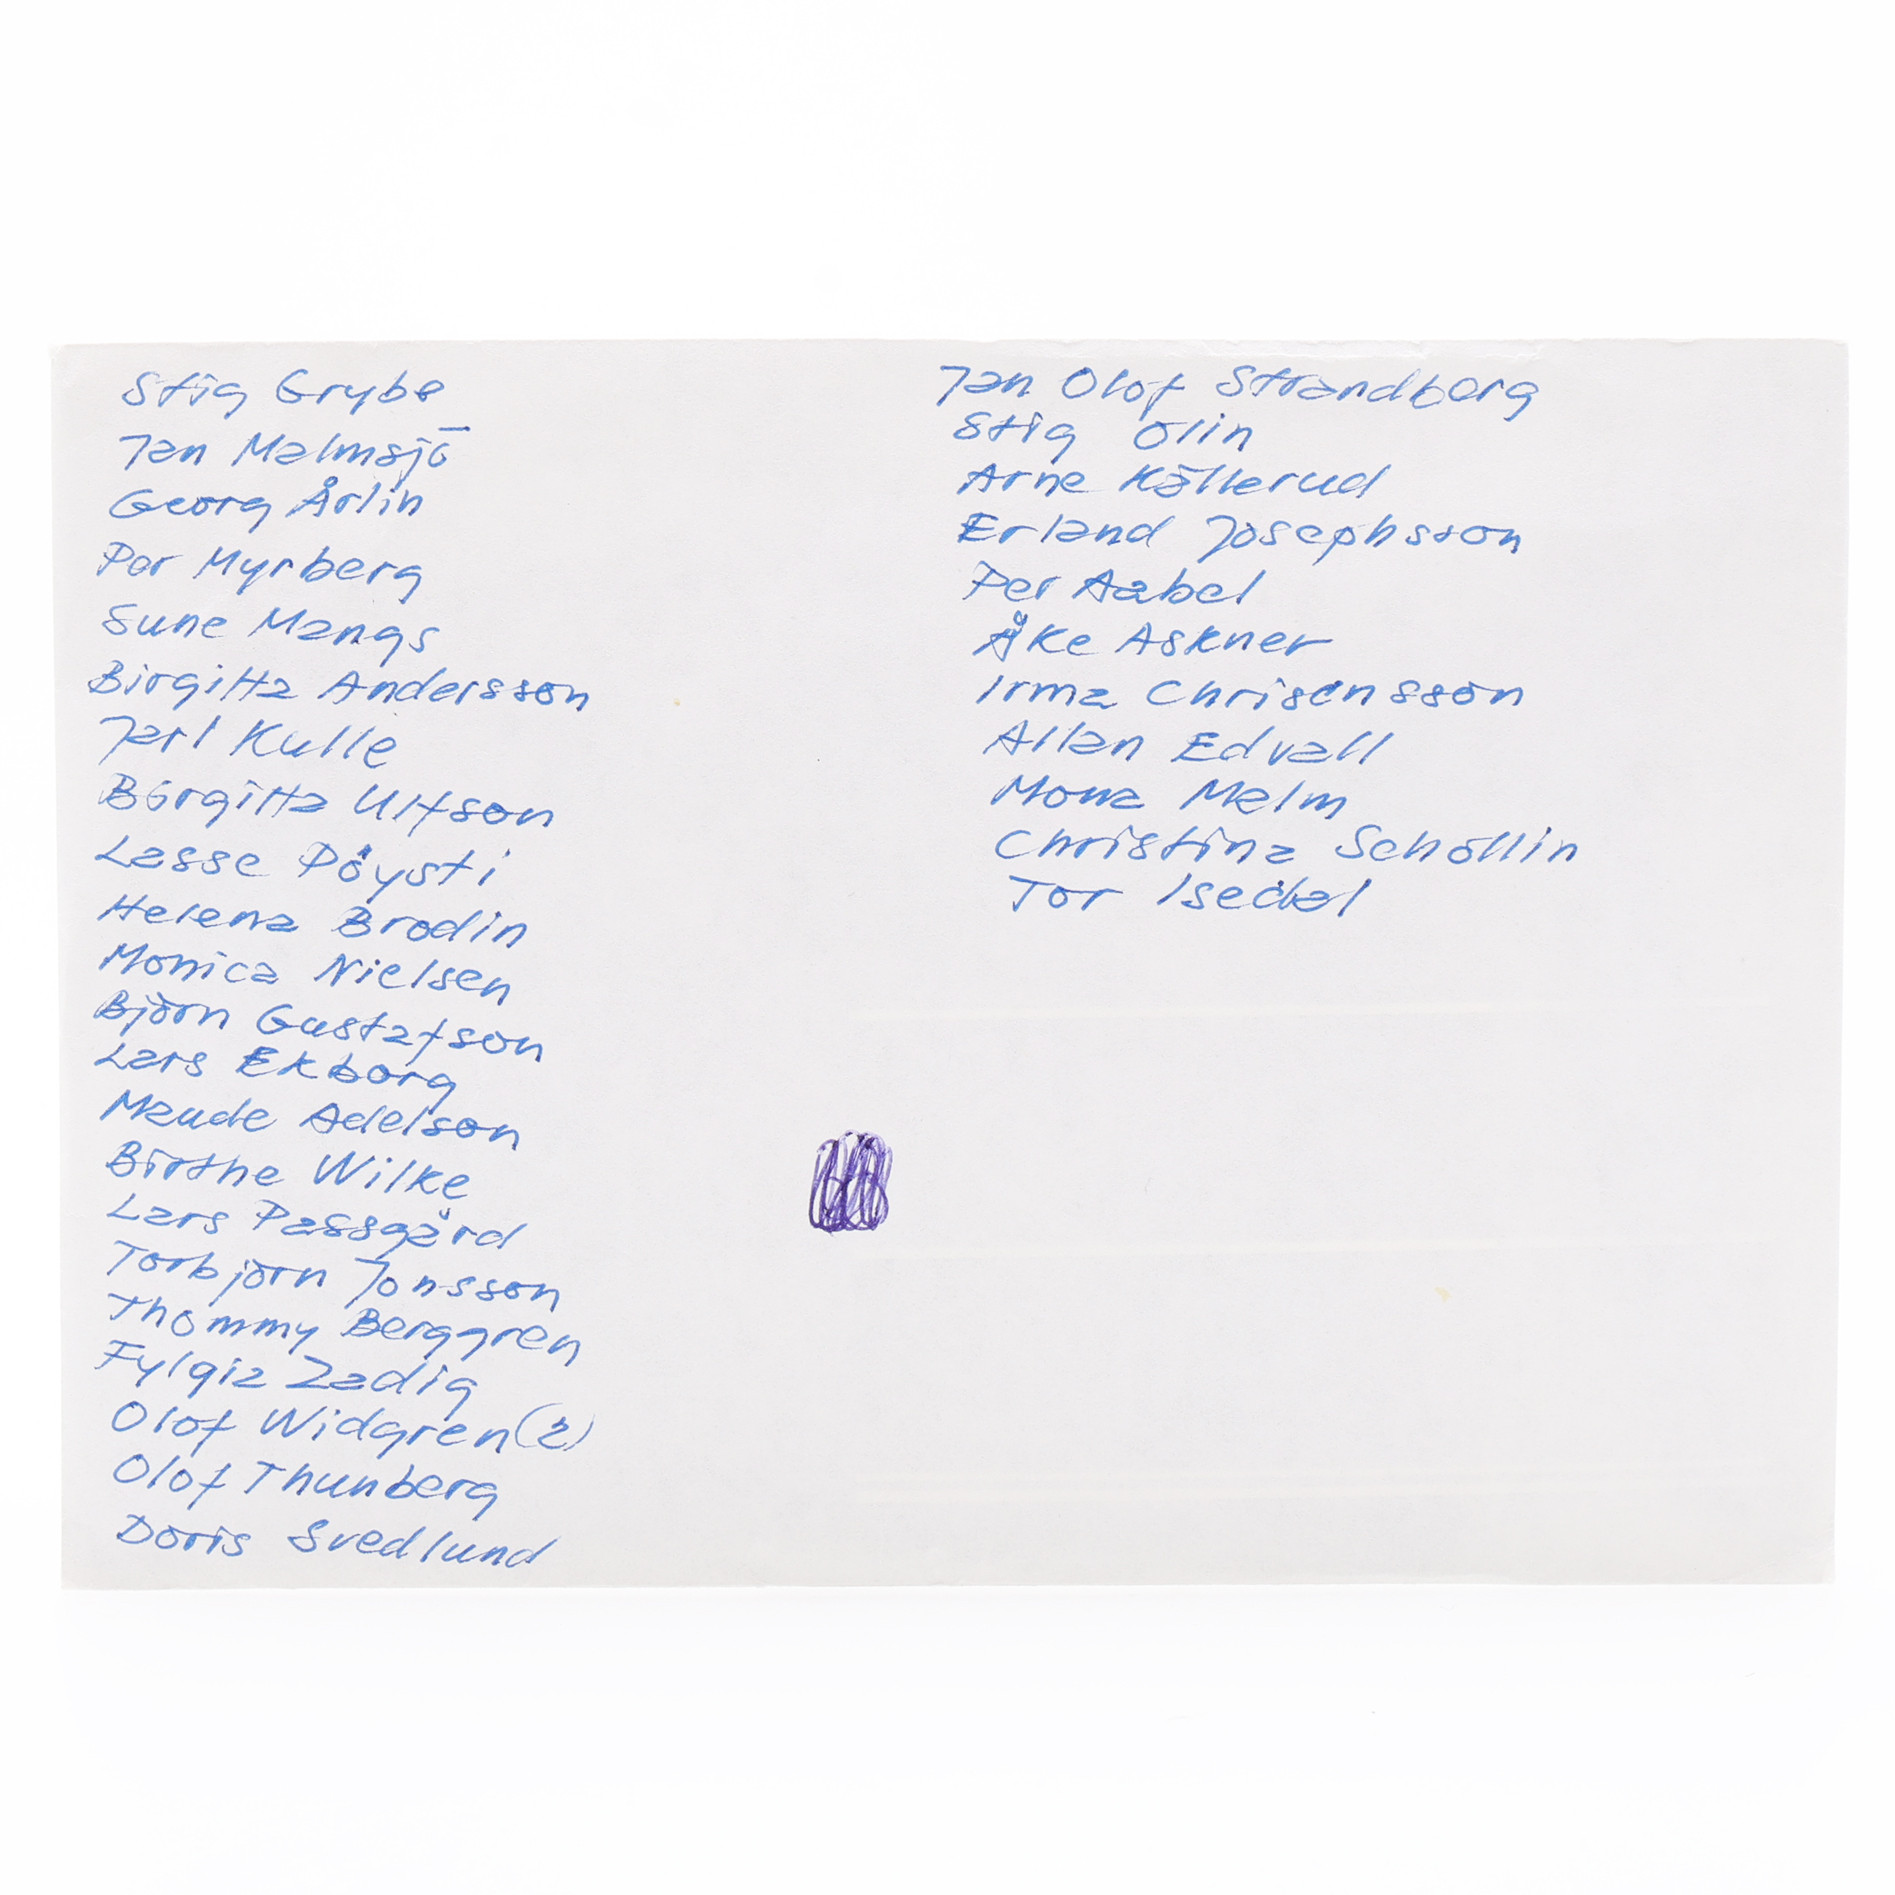 Stig Grybe
Jan Malmsjö
Georg Årlin
Per Myrberg
Sune Mangs
Birgitta Andersson
Jarl Kulle
Birgitta Ulfson
Lasse Pöysti
Helena Brodin
Monica Nielsen
Björn Gustafson
Lars Ekborg
Maude Adelson
Birthe Wilke
Lars Passgård
Torbjörn Jonsson
Thommy Berggren
Fylgia Zadig
Olof Widgren (2)
Olof Thunberg
Doris Svedlund
Jan Olof Strandberg
Stig Olin
Arne Källerud
Erland Josephsson
Per Aabel
Åke Askner
Irma Chrisensson
Allan Edvall
Mona Malm
Christina Schollin
Tor Isedal